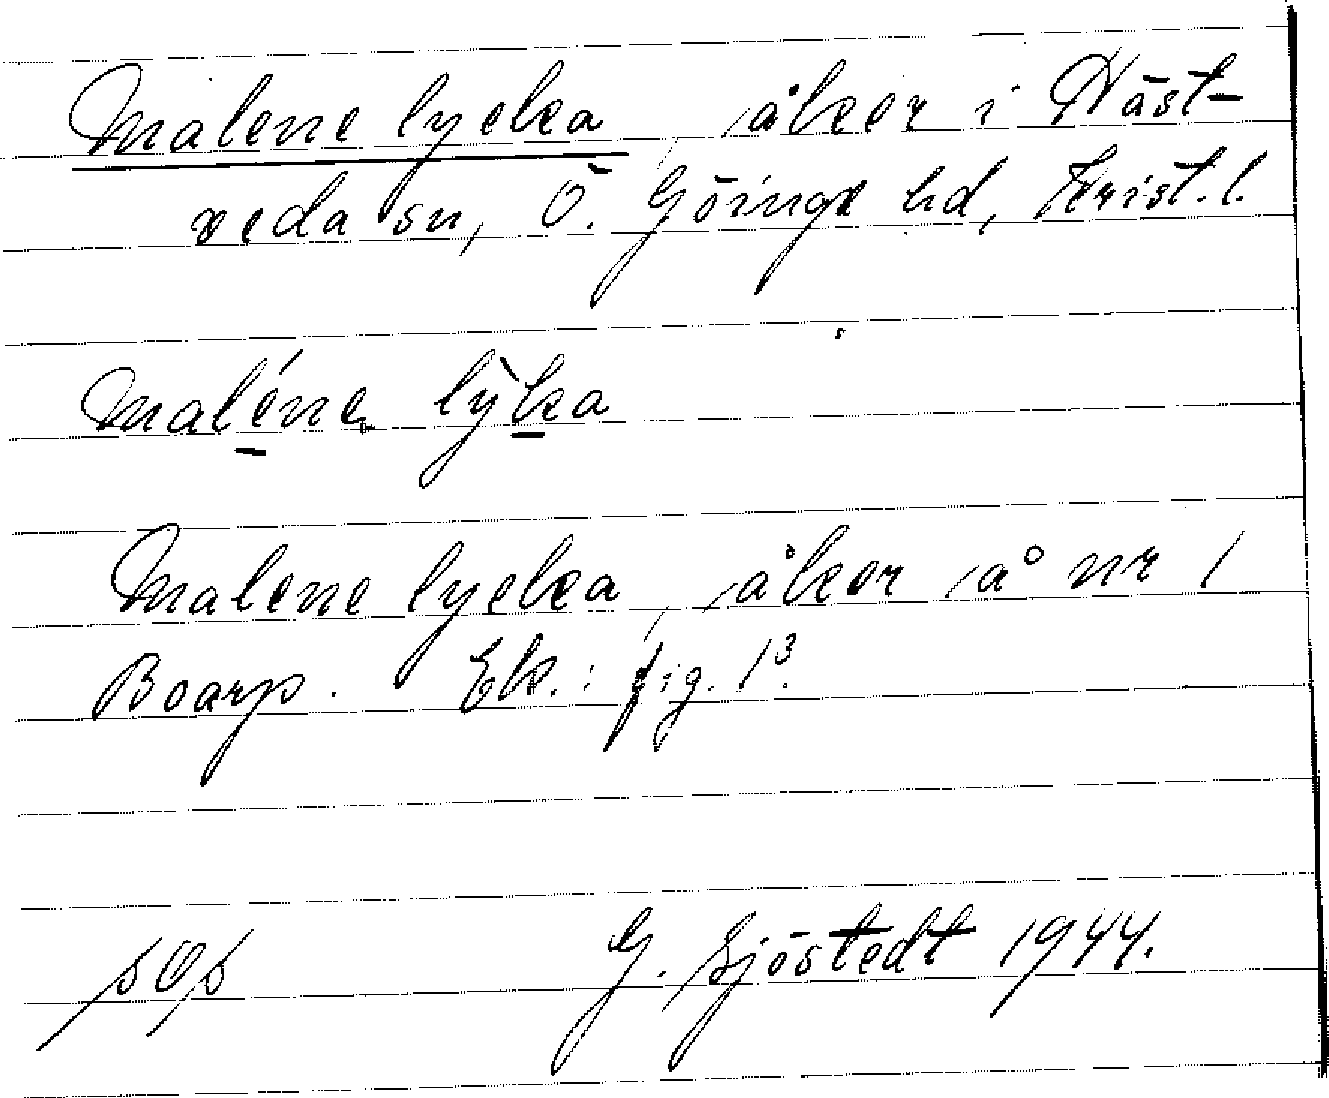 Malene lycka, åker i Häst-
veda sn, Ö. Göinge hd, Krist. l.
maléne lỳka
Malene lycka, åker å nr 1
Boarp. Ek.: fig. 1³.
G. Sjöstedt 1944.